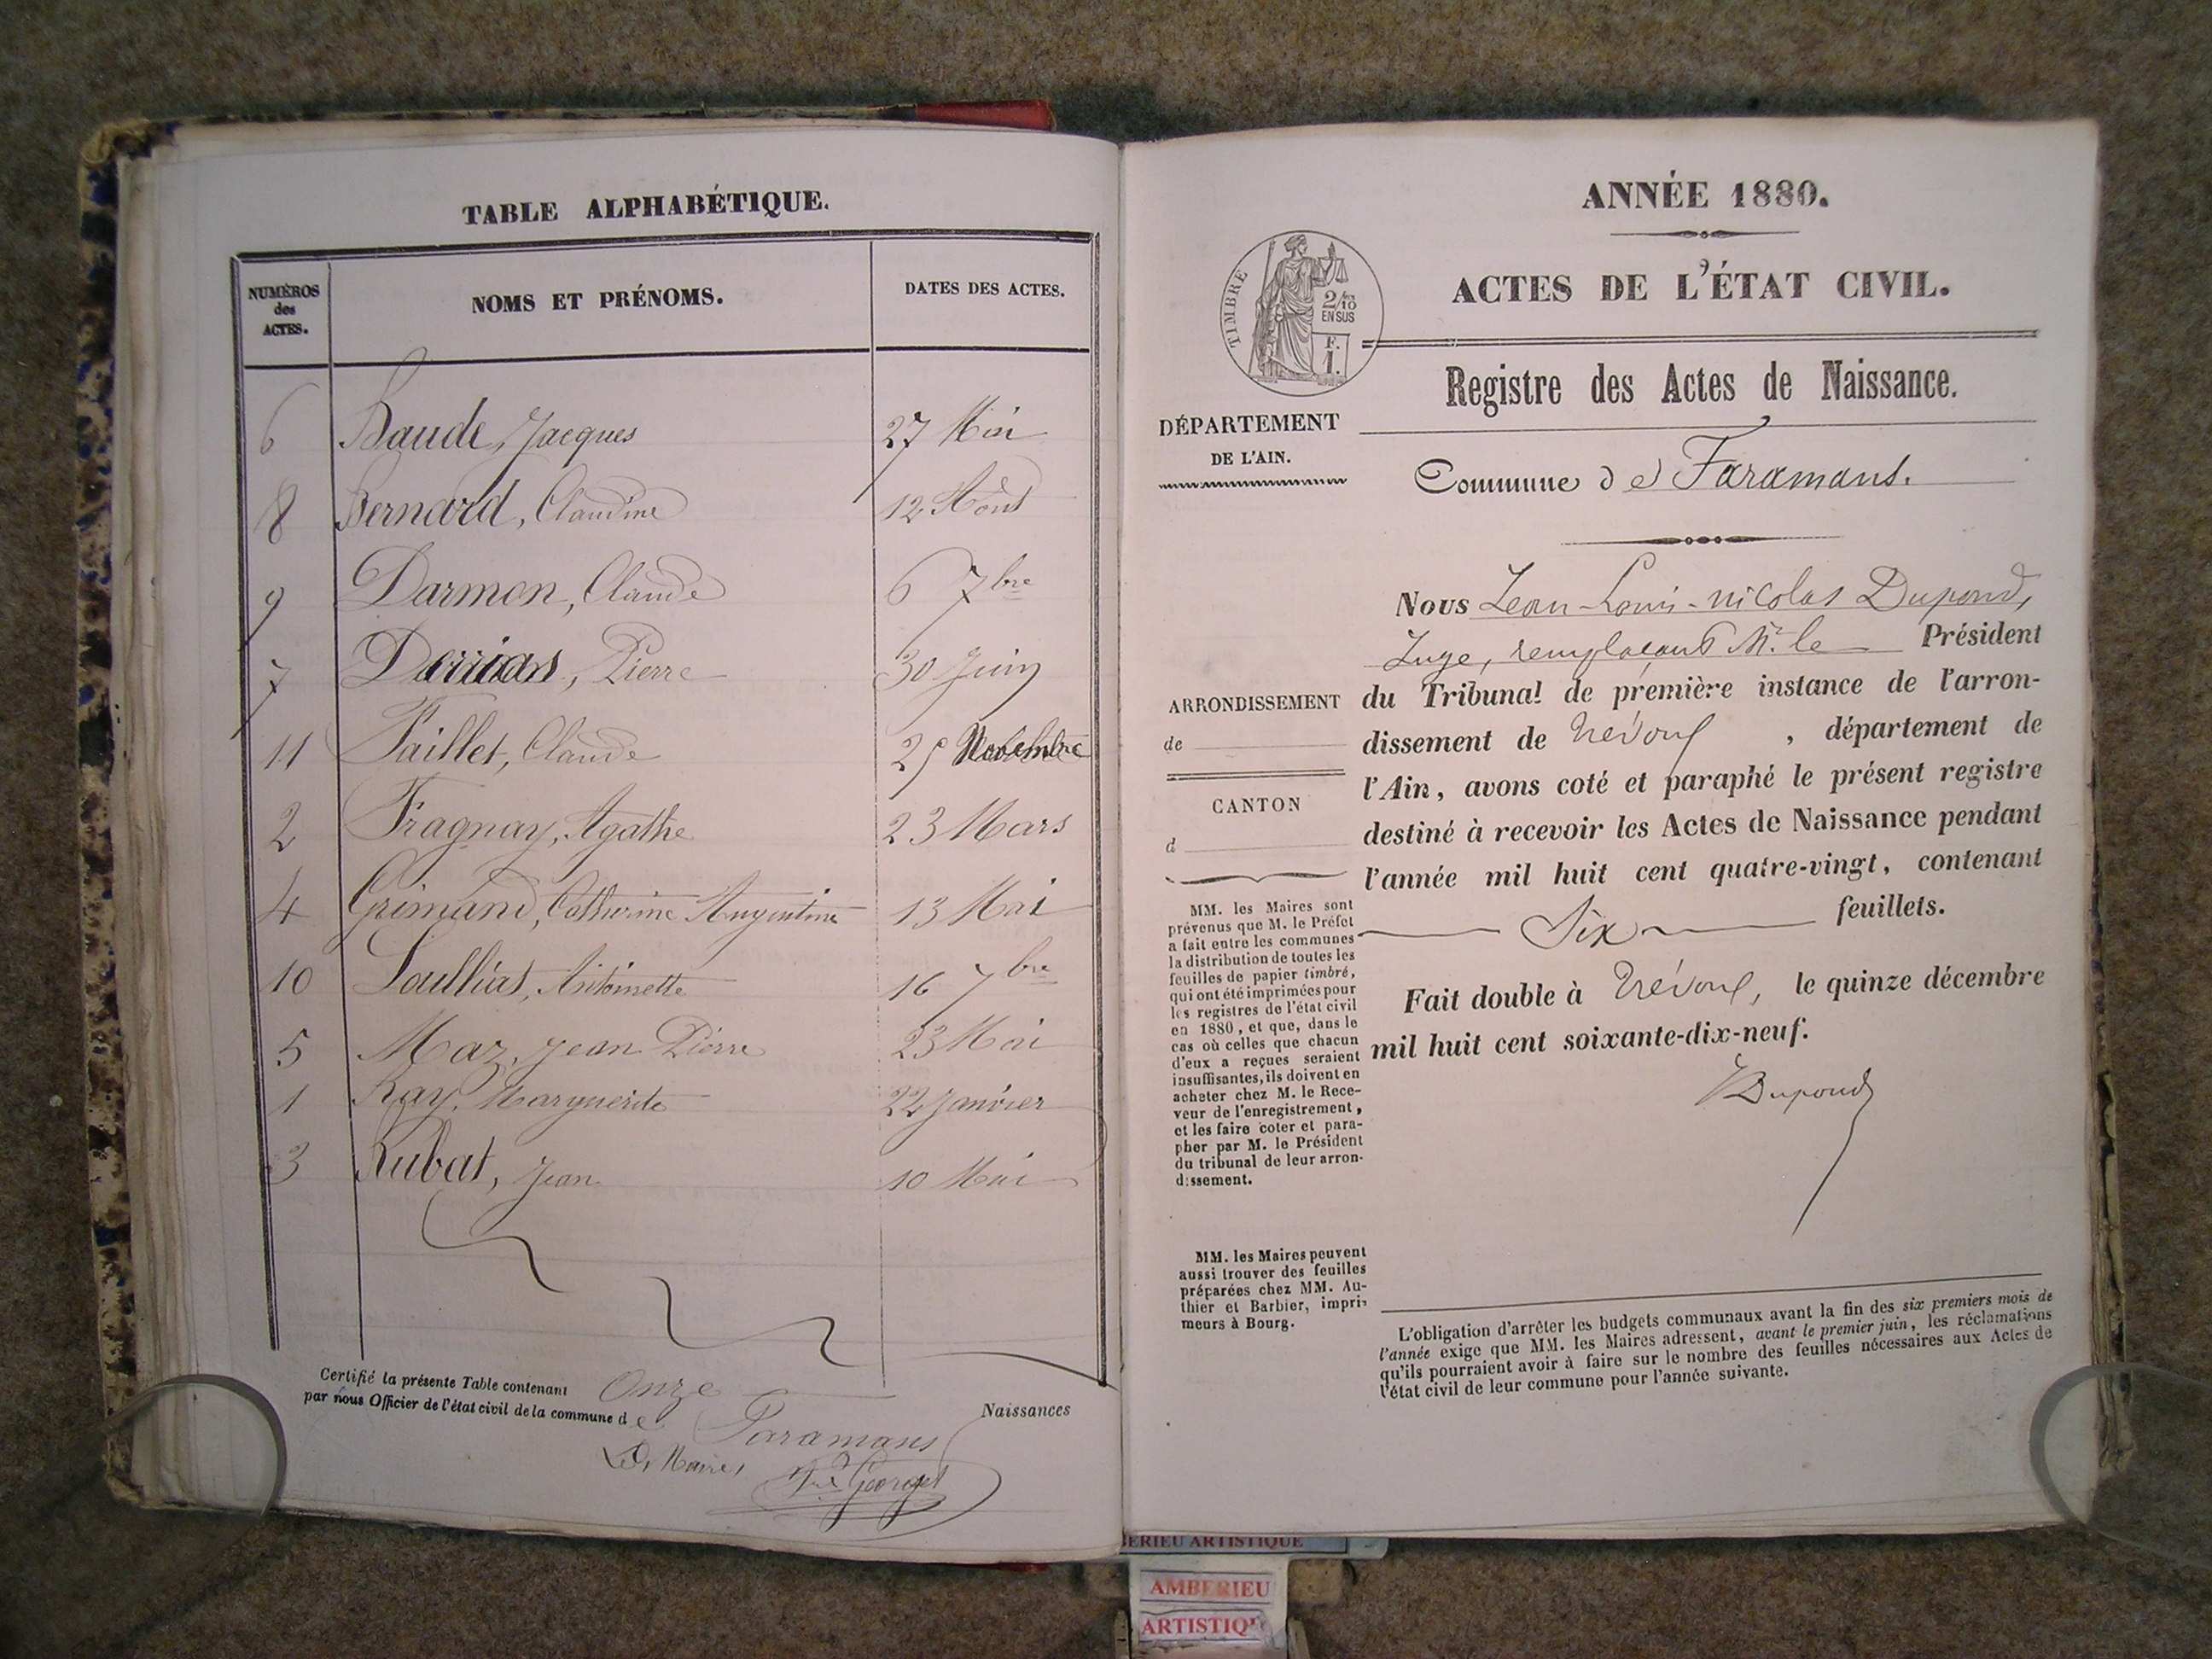 TABLE ALPHABÉTIQUE.
NUMÉROS des ACTES. NOMS ET PRÉNOMS. DATES DES ACTES.
6 Baude, Jacques 27 Mai
8 Bernard, Claudine 12 Août
9 Darmon, Claude 6 7bre
7 Pierre 30 Juin
11 Faillet, Claude 25 Novembre
2 Fragnay, Agathe 23 Mars
4 Grimand, Catherine 13 Mai
10 Antoinette 16 7bre
5 Maz, Jean Pierre 23 Mai
1 Ray, Marguerite 22 Janvier
3 Rubat, Jean 10 Mai
Certifié la présente Table contenant Onze Naissances
par nous Officier de l'état civil de la commune de Faramans
Le Maire,
Georget
ANNÉE 1880.
ACTES DE L'ÉTAT CIVIL.
TIMBRE
2/10 EN SUS
F. 1.
Registre des Actes de Naissance.
DÉPARTEMENT
DE L'AIN.
Commune de Faramans.
Nous Jean-Louis-nicolas Dupond,
Juge, remplaçant Mr. le Président
du Tribunal de première instance de l'arron-
dissement de Trévoux, département de
l'Ain, avons coté et paraphé le présent registre
destiné à recevoir les Actes de Naissance pendant
l'année mil huit cent quatre-vingt, contenant
Six feuillets.
Fait double à Trévoux, le quinze décembre
mil huit cent soixante-dix-neuf.
Dupond
ARRONDISSEMENT
de
CANTON
d
MM. les Maires sont
prévenus que M. le Préfet
a fait entre les communes
la distribution de toutes les
feuilles de papier timbré,
qui ont été imprimées pour
les registres de l'état civil
en 1880, et que, dans le
cas où celles que chacun
d'eux a reçues seraient
insuffisantes, ils doivent en
acheter chez M. le Rece-
veur de l'enregistrement,
et les faire coter et para-
pher par M. le Président
du tribunal de leur arron-
dissement.
MM. les Maires peuvent
aussi trouver des feuilles
préparées chez MM. Au-
thier et Barbier, impri-
meurs à Bourg.
L'obligation d'arrêter les budgets communaux avant la fin des six premiers mois de
l'année exige que MM. les Maires adressent, avant le premier juin, les réclamations
qu'ils pourraient avoir à faire sur le nombre des feuilles nécessaires aux Actes de
l'état civil de leur commune pour l'année suivante.
BERIEU ARTISTIQUE
AMBERIEU
ARTISTIQU